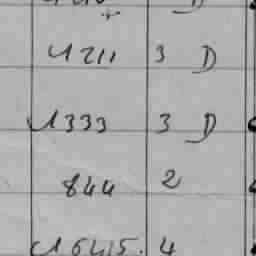 1211 3 D
1333 3 D
844 2
16415. 4